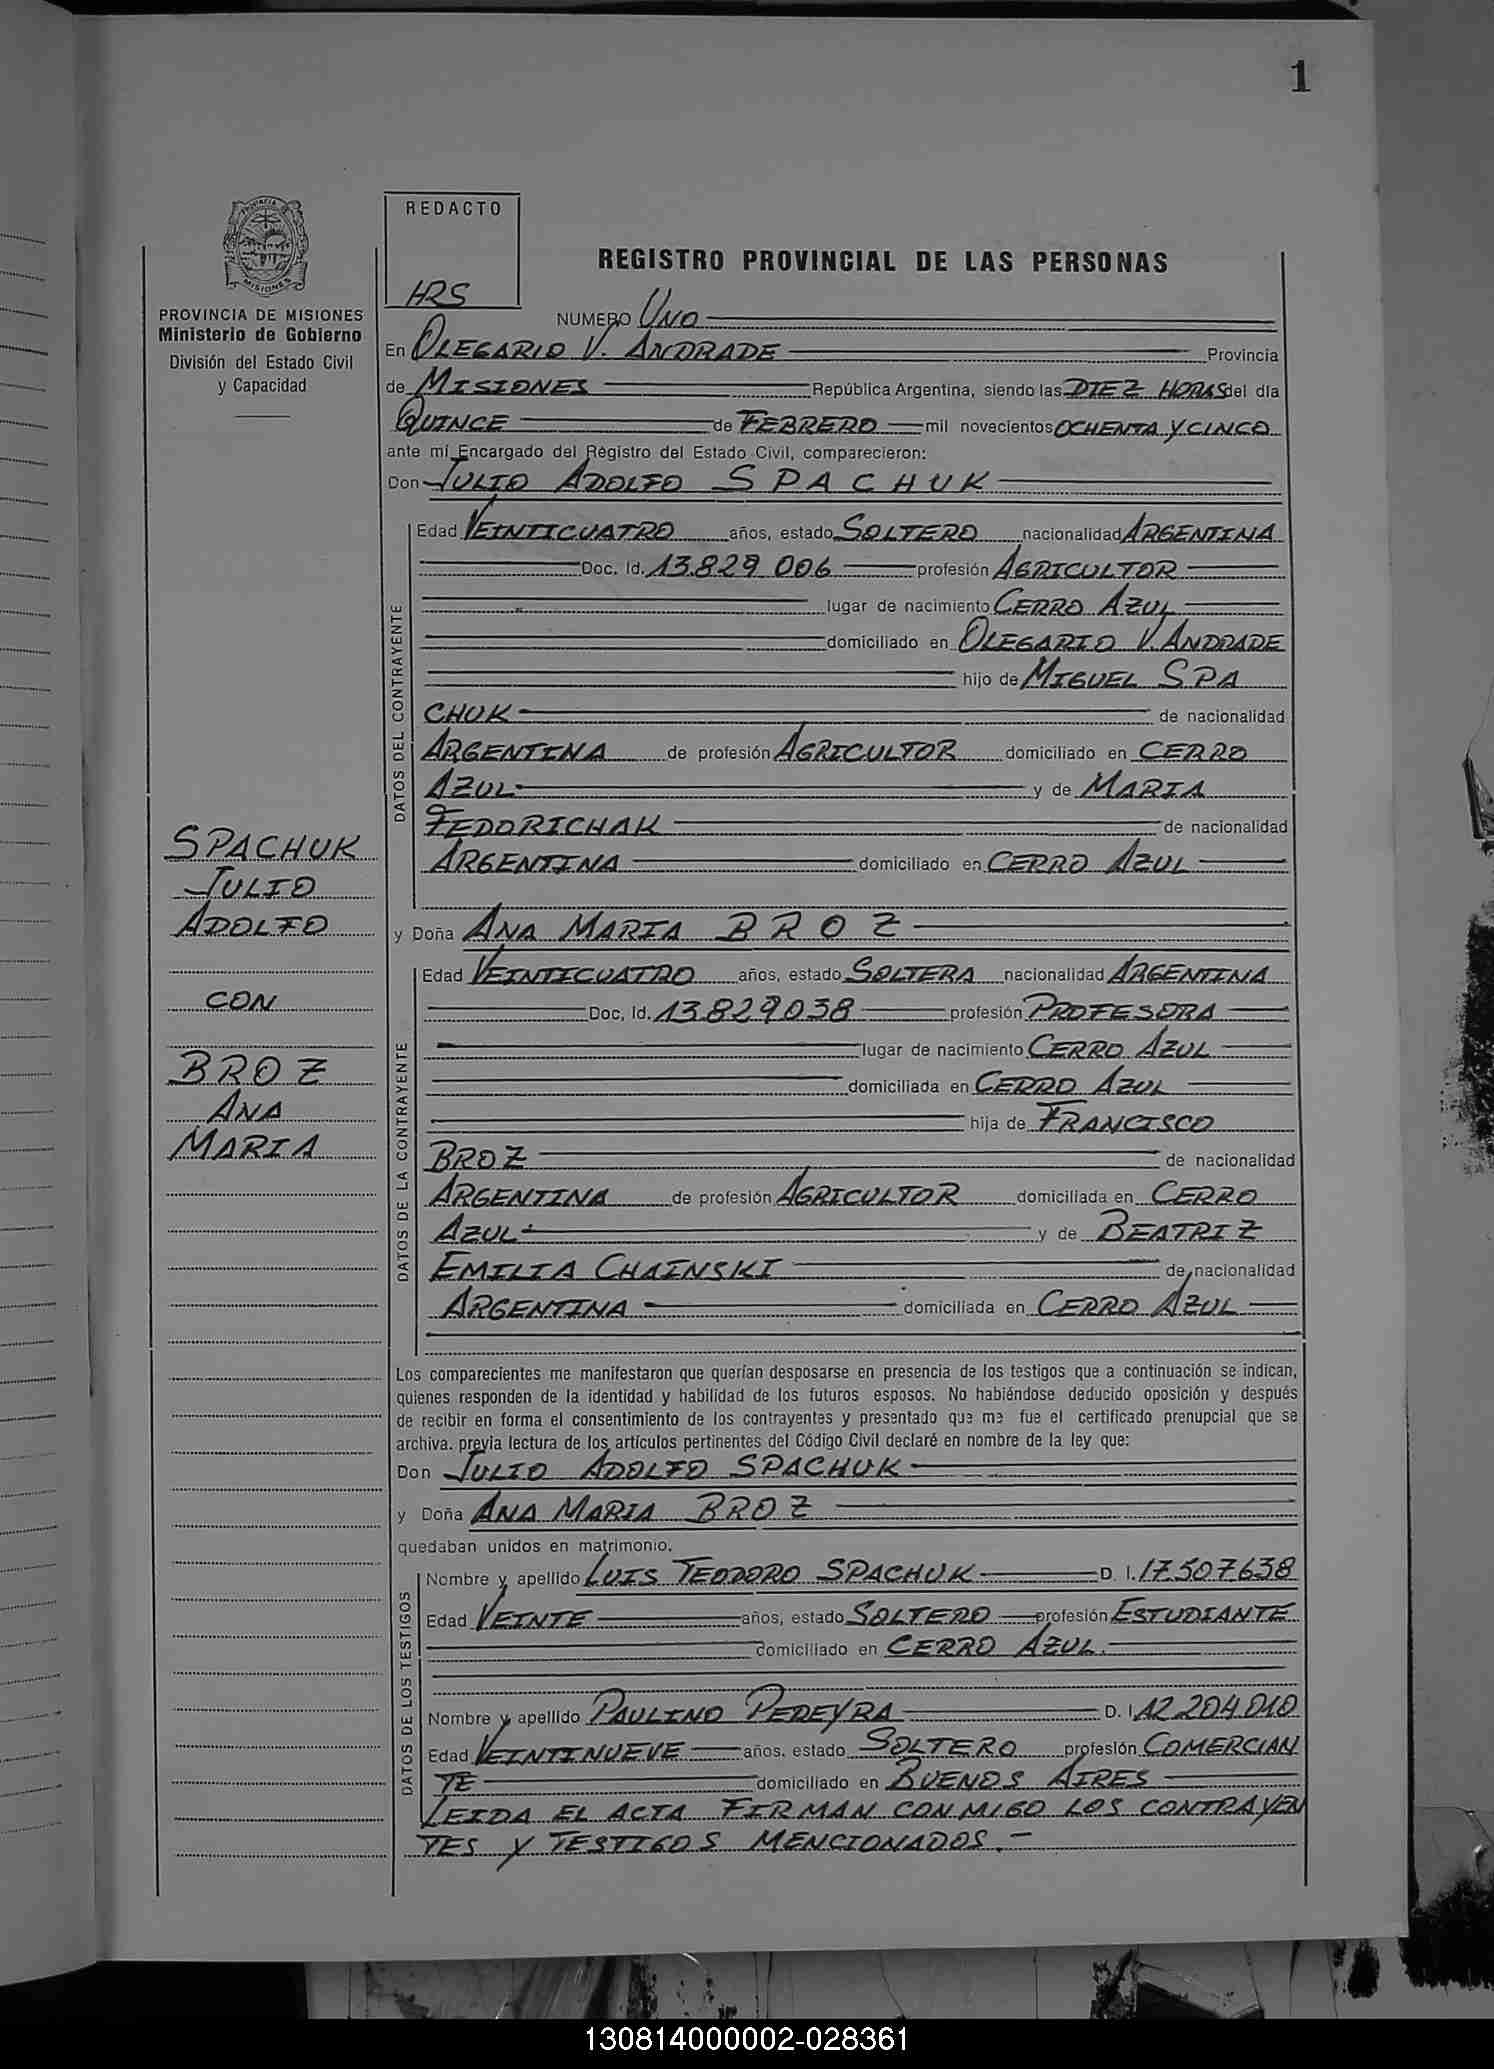 1
REDACTO
HRS
PROVINCIA DE MISIONES
Ministerio de Gobierno
División del Estado Civil
y Capacidad
SPACHUK
JULIO
ADOLFO
CON
BROZ
ANA
MARIA
REGISTRO PROVINCIAL DE LAS PERSONAS
NUMERO UNO
En OLEGARIO V. ANDRADE Provincia
de MISIONES República Argentina, siendo las DIEZ HORAS del día
QUINCE de FEBRERO mil novecientos OCHENTA Y CINCO
ante mí Encargado del Registro del Estado Civil, comparecieron:
Don JULIO ADOLFO SPACHUK
DATOS DEL CONTRAYENTE
Edad VEINTICUATRO años, estado SOLTERO nacionalidad ARGENTINA
Doc. Id. 13.829.006 profesión AGRICULTOR
lugar de nacimiento CERRO AZUL
domiciliado en OLEGARIO V. ANDRADE
hijo de MIGUEL SPA
CHUK de nacionalidad
ARGENTINA de profesión AGRICULTOR domiciliado en CERRO
AZUL y de MARIA
FEDORICHAK de nacionalidad
ARGENTINA domiciliado en CERRO AZUL
y Doña ANA MARIA BROZ
DATOS DE LA CONTRAYENTE
Edad VEINTICUATRO años, estado SOLTERA nacionalidad ARGENTINA
Doc. Id. 13.829.038 profesión PROFESORA
lugar de nacimiento CERRO AZUL
domiciliada en CERRO AZUL
hija de FRANCISCO
BROZ de nacionalidad
ARGENTINA de profesión AGRICULTOR domiciliada en CERRO
AZUL y de BEATRIZ
EMILIA CHAINSKI de nacionalidad
ARGENTINA domiciliada en CERRO AZUL
Los comparecientes me manifestaron que querían desposarse en presencia de los testigos que a continuación se indican,
quienes responden de la identidad y habilidad de los futuros esposos. No habiéndose deducido oposición y después
de recibir en forma el consentimiento de los contrayentes y presentado que me fue el certificado prenupcial que se
archiva. previa lectura de los artículos pertinentes del Código Civil declaré en nombre de la ley que:
Don JULIO ADOLFO SPACHUK
y Doña ANA MARIA BROZ
quedaban unidos en matrimonio.
DATOS DE LOS TESTIGOS
Nombre y apellido LUIS TEODORO SPACHUK D. I. 17.507638
Edad VEINTE años, estado SOLTERO profesión ESTUDIANTE
domiciliado en CERRO AZUL.
Nombre y apellido PAULINO PEREYRA D. I. 12.204.010
Edad VEINTINUEVE años, estado SOLTERO profesión COMERCIAN
TE domiciliado en BUENOS AIRES
LEIDA EL ACTA FIRMAN CONMIGO LOS CONTRAYEN
TES Y TESTIGOS MENCIONADOS.-
130814000002-028361